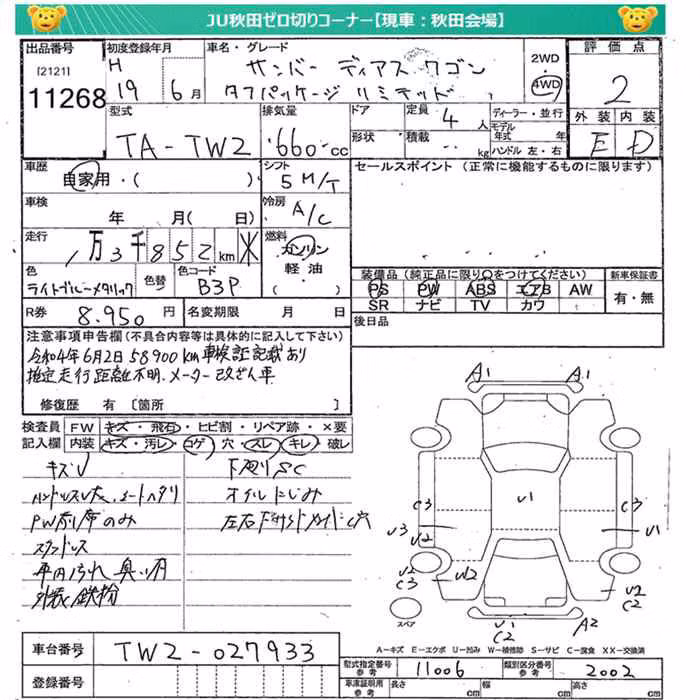 JU秋田ゼロ切りコーナー【現車：秋田会場】
出品番号 初度登録年月 車名・グレード 2WD 評価点
[2121] H サンバー ディアス ワゴン 4WD 2
11268 19 6月 タフパッケージ リミテッド
型式 排気量 ドア 定員 4人 ディーラー・並行 外装 内装
TA-TW2 660cc 形状 積載 kg モデル年式 年 E D
ハンドル 左・右
車歴 シフト セールスポイント (正常に機能するものに限ります)
自家用・( ) 5 M/T
車検 冷房
年 月( 日) A/C
走行 燃料
1万3千852km ガソリン
軽油
色 色替 色コード 装備品 (純正品に限り○をつけてください) 新車保証書
ライトブルーメタリック B3P PS PW ABS エアB AW 有・無
SR ナビ TV カワ
R券 8.950円 名変期限 月 日 後日品
注意事項申告欄 (不具合内容等は具体的に記入して下さい)
令和4年6月2日 58900km 車検証記載あり
推定走行距離不明、メーター改ざん車
修復歴 有 [箇所 ]
検査員 FW キズ・飛石・ヒビ割・リペア跡・×要
記入欄 内装 キズ・汚レ・コゲ 穴・スレ・キレ・破レ
キズU 下廻りSC
オイルにじみ
PW前席のみ 左右下サイドメンバーC穴
スタッドレス
車内汚れ
鉄粉
A1 A1
U1
C3 C3
U3 U1
U2
U2 W2 U2
C3 C2
U1 A2
C2
スペア
A－キズ E－エクボ U－凹み W－補修跡 S－サビ C－腐食 XX－交換済
車台番号 TW2-027933
型式指定番号 参考 11006 類別区分番号 参考 2002
登録番号 車庫証明用 参考 長さ cm 幅 cm 高さ cm